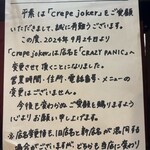 平素は「crepe joker」をご愛顧
いただきまして、誠に有難うございます。
この度、2024年9月24日より
「crepe joker」は店名を「CRAZY PANIC」へ
変更させて頂くことになりました。
営業時間・住所・電話番号・メニューの
変更はございません。
今後も変わらぬご愛顧を賜りますよう
心よりお願い申し上げます。
※店名変更後も、旧店名と新店名が混同する
場合がございますが、どちらも当店に変わり